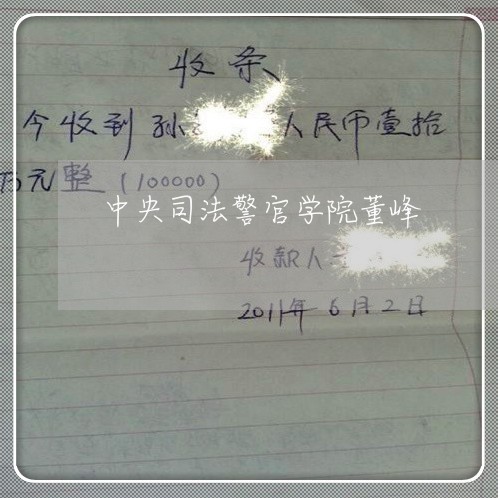 收条
今收到孙 人民币壹拾
万元整(100000)
中央司法警官学院董峰
收款人
2011年6月2日